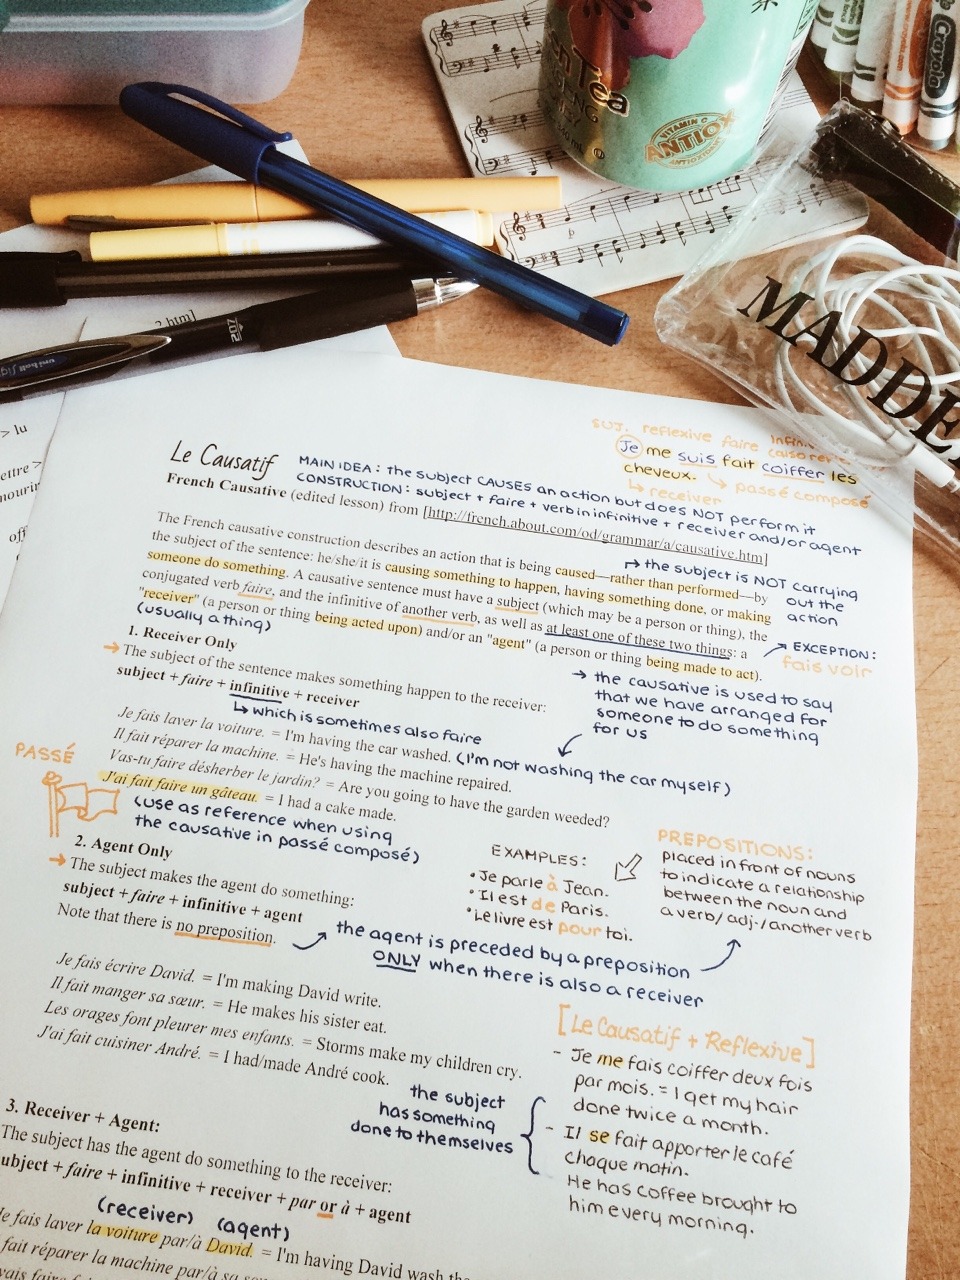 Tea
VITAMIN C
ANTIOX
ANTIOXIDANT
Crayola
MADDE
uni-ball
207
2.htm]
> lu
ettre >
nourir
off
SUJ. reflexive faire infini
Je me suis fait coiffer les
cheveux. ↳ passé composé
↳ receiver
Le Causatif
MAIN IDEA: the subject CAUSES an action but does NOT perform it
CONSTRUCTION: subject + faire + verb in infinitive + receiver and/or agent
French Causative (edited lesson) from [http://french.about.com/od/grammar/a/causative.htm]
The French causative construction describes an action that is being caused—rather than performed—by
the subject of the sentence: he/she/it is causing something to happen, having something done, or making
someone do something. A causative sentence must have a subject (which may be a person or thing), the
conjugated verb faire, and the infinitive of another verb, as well as at least one of these two things: a
"receiver" (a person or thing being acted upon) and/or an "agent" (a person or thing being made to act).
(usually a thing)
↳ the subject is NOT carrying
out the
action
→ EXCEPTION:
fais voir
1. Receiver Only
→ The subject of the sentence makes something happen to the receiver:
subject + faire + infinitive + receiver
↳ which is sometimes also faire
→ the causative is used to say
that we have arranged for
someone to do something
for us
Je fais laver la voiture. = I'm having the car washed. (I'm not washing the car myself)
Il fait réparer la machine. = He's having the machine repaired.
Vas-tu faire désherber le jardin? = Are you going to have the garden weeded?
J'ai fait faire un gâteau. = I had a cake made.
PASSÉ
(use as reference when using
the causative in passé composé)
2. Agent Only
→ The subject makes the agent do something:
subject + faire + infinitive + agent
Note that there is no preposition.
EXAMPLES:
• Je parle à Jean.
• Il est de Paris.
• Le livre est pour toi.
PREPOSITIONS:
placed in front of nouns
to indicate a relationship
between the noun and
a verb/adj./another verb
the agent is preceded by a preposition
ONLY when there is also a receiver
Je fais écrire David. = I'm making David write.
Il fait manger sa sœur. = He makes his sister eat.
Les orages font pleurer mes enfants. = Storms make my children cry.
J'ai fait cuisiner André. = I had/made André cook.
[Le Causatif + Reflexive]
- Je me fais coiffer deux fois
par mois. = I get my hair
done twice a month.
- Il se fait apporter le café
chaque matin.
He has coffee brought to
him every morning.
the subject
has something
done to themselves
3. Receiver + Agent:
The subject has the agent do something to the receiver:
subject + faire + infinitive + receiver + par or à + agent
(receiver) (agent)
Je fais laver la voiture par/à David. = I'm having David wash the
fait réparer la machine par/à sa